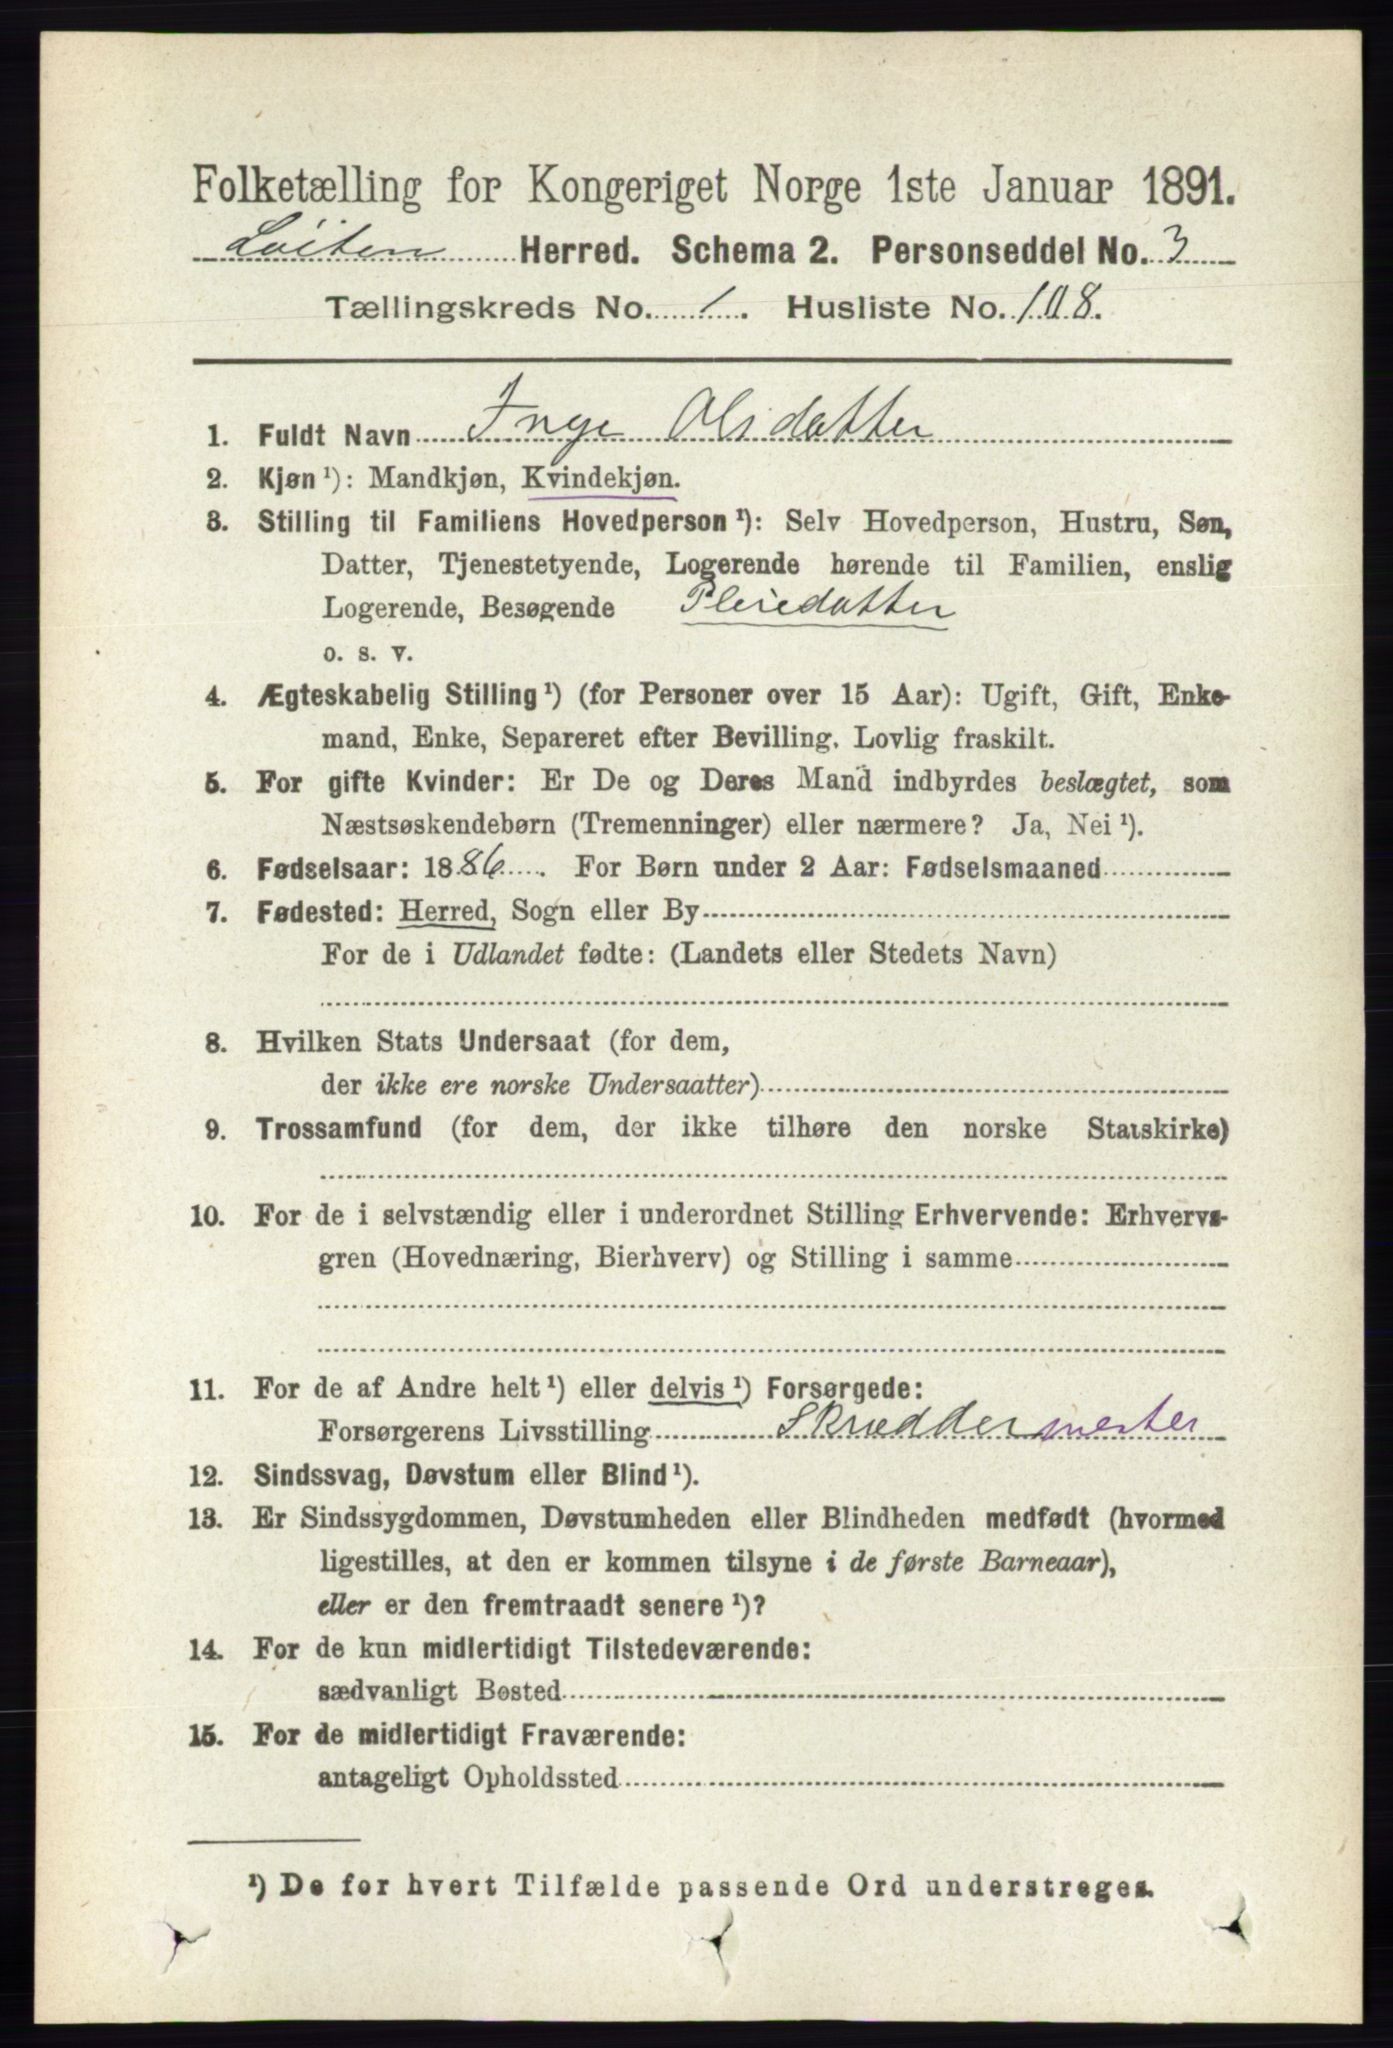 Folketælling for Kongeriget Norge 1ste Januar 1891.
Löiten Herred. Schema 2. Personseddel No. 3
Tællingskreds No. 1. Husliste No. 108.
1. Fuldt Navn Inge Olsdatter
2. Kjøn ¹): Mandkjøn, Kvindekjøn.
3. Stilling til Familiens Hovedperson ¹): Selv Hovedperson, Hustru, Søn,
Datter, Tjenestetyende, Logerende hørende til Familien, enslig
Logerende, Besøgende Pleiedatter
o. s. v.
4. Ægteskabelig Stilling ¹) (for Personer over 15 Aar): Ugift, Gift, Enke-
mand, Enke, Separeret efter Bevilling. Lovlig fraskilt.
5. For gifte Kvinder: Er De og Deres Mand indbyrdes beslægtet, som
Næstsøskendebørn (Tremenninger) eller nærmere? Ja, Nei ¹).
6. Fødselsaar: 1886. For Børn under 2 Aar: Fødselsmaaned
7. Fødested: Herred, Sogn eller By
For de i Udlandet fødte: (Landets eller Stedets Navn)
8. Hvilken Stats Undersaat (for dem,
der ikke ere norske Undersaatter)
9. Trossamfund (for dem, der ikke tilhøre den norske Statskirke)
10. For de i selvstændig eller i underordnet Stilling Erhvervende: Erhvervs-
gren (Hovednæring, Bierhverv) og Stilling i samme
11. For de af Andre helt ¹) eller delvis ¹) Forsørgede:
Forsørgerens Livsstilling Skræddermester
12. Sindssvag, Døvstum eller Blind ¹).
13. Er Sindssygdommen, Døvstumheden eller Blindheden medfødt (hvormed
ligestilles, at den er kommen tilsyne i de første Barneaar),
eller er den fremtraadt senere ¹)?
14. For de kun midlertidigt Tilstedeværende:
sædvanligt Bosted
15. For de midlertidigt Fraværende:
antageligt Opholdssted
¹) De for hvert Tilfælde passende Ord understreges.